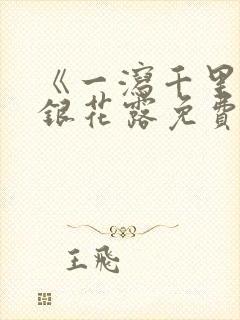 《一瀉千里
銀花露免費
王飛